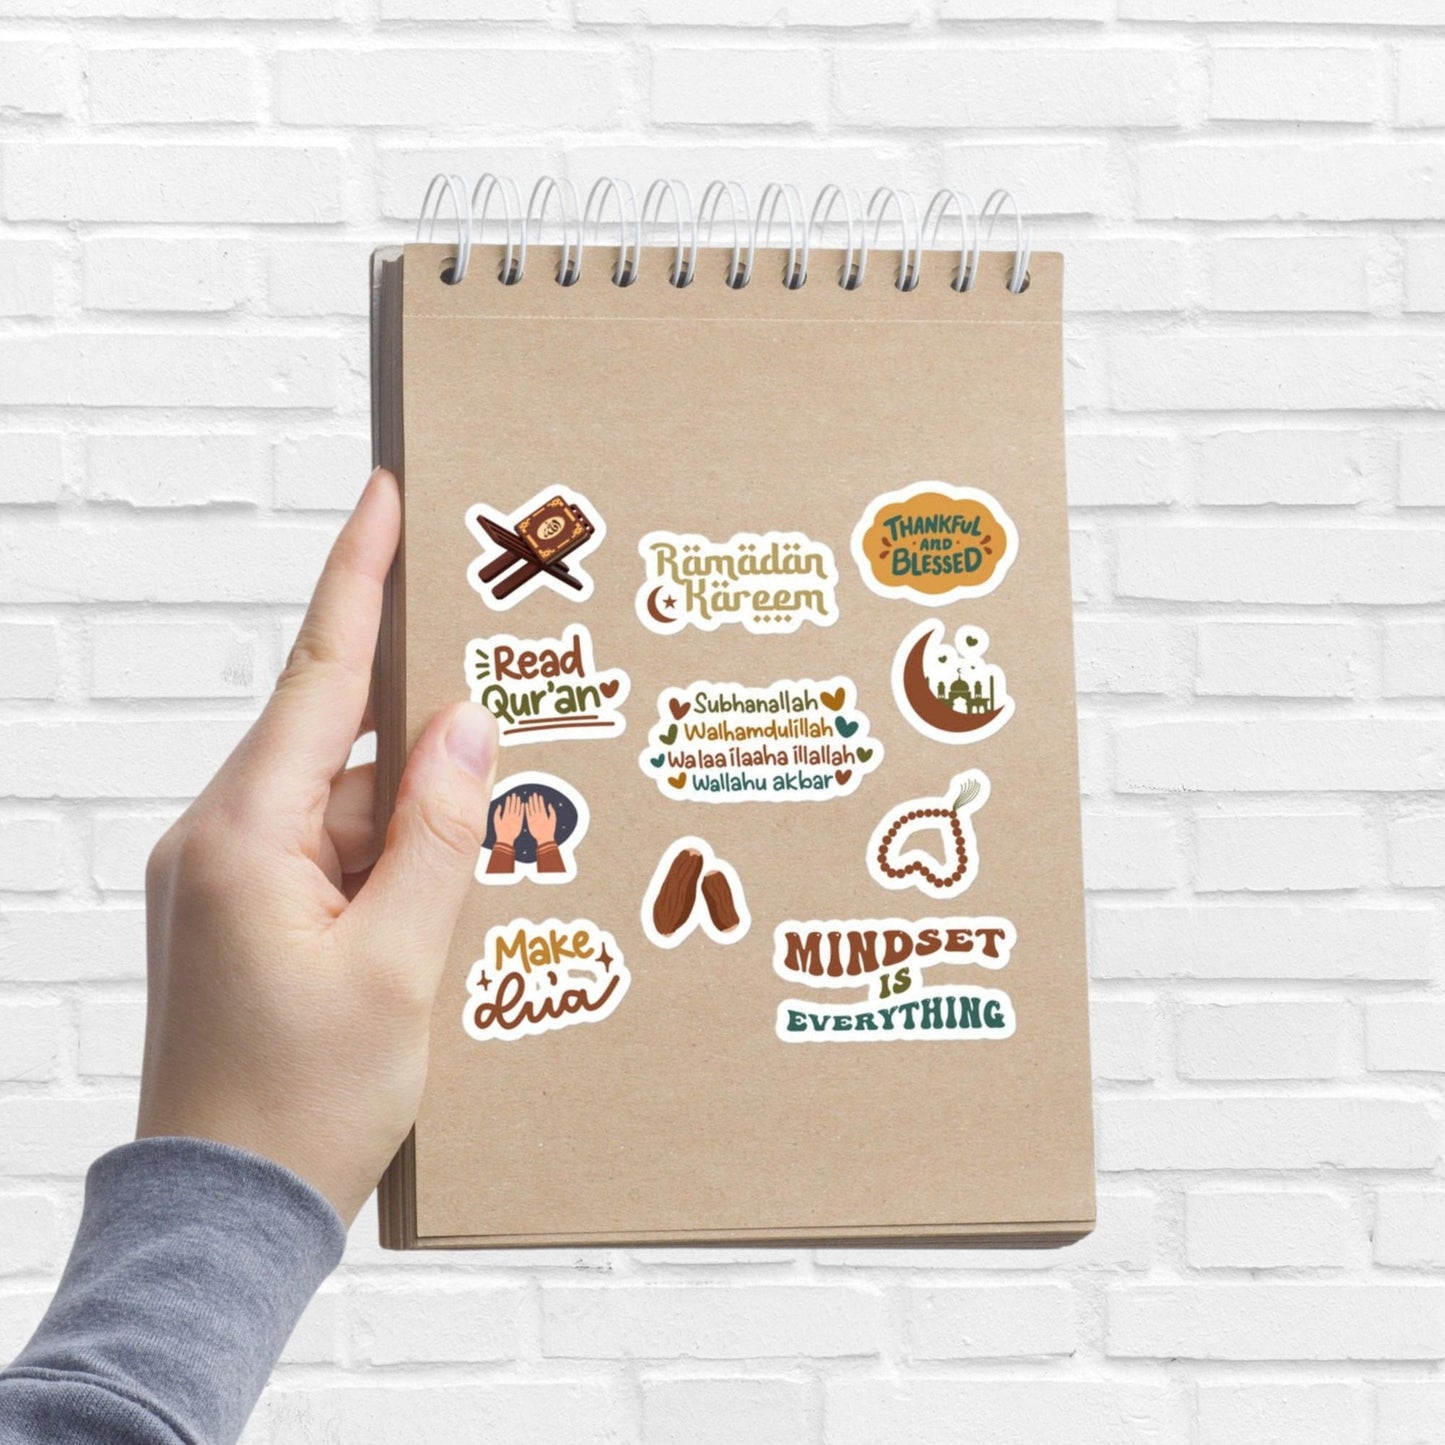 Thankful
and
Blessed
Rämädän
Käreem
Read
Qur'an
Subhanallah
Walhamdulillah
Walaa ilaaha illallah
Wallahu akbar
Make
du'a
MINDSET
IS
EVERYTHING